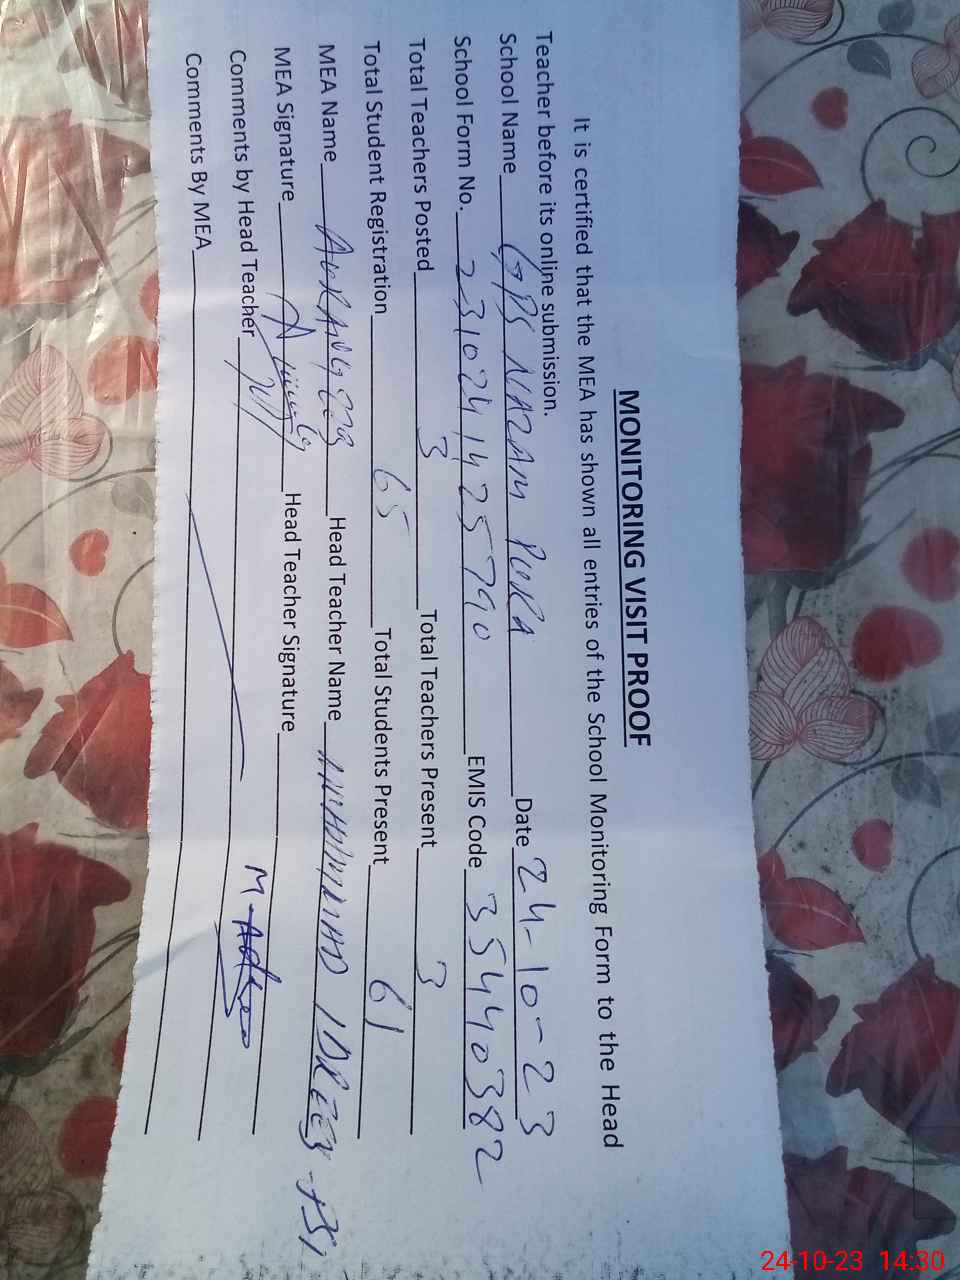 MONITORING VISIT PROOF
It is certified that the MEA has shown all entries of the School Monitoring Form to the Head
Teacher before its online submission.
School Name GPS NAZAM PURA Date 24-10-23
School Form No. 2310241425790 EMIS Code 35440382
Total Teachers Posted 3 Total Teachers Present 3
Total Student Registration 65 Total Students Present 61
MEA Name AURANGZEB Head Teacher Name MUHAMMAD IDREES
MEA Signature Head Teacher Signature
Comments by Head Teacher
Comments By MEA
24-10-23 14:30